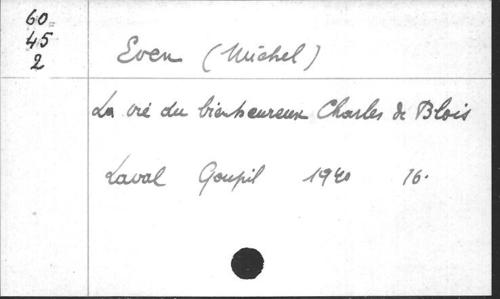 60
45
2
Even (Michel)
La vie du bienheureux Charles de Blois
Laval Goupil 1940 16.